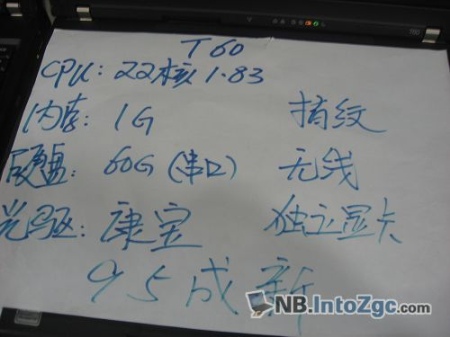 T60
CPU: 22核1.83
内存: 1G 指纹
硬盘: 60G(串口) 无线
光驱: 康宝 独立显卡
95成新
NB.IntoZgc.com